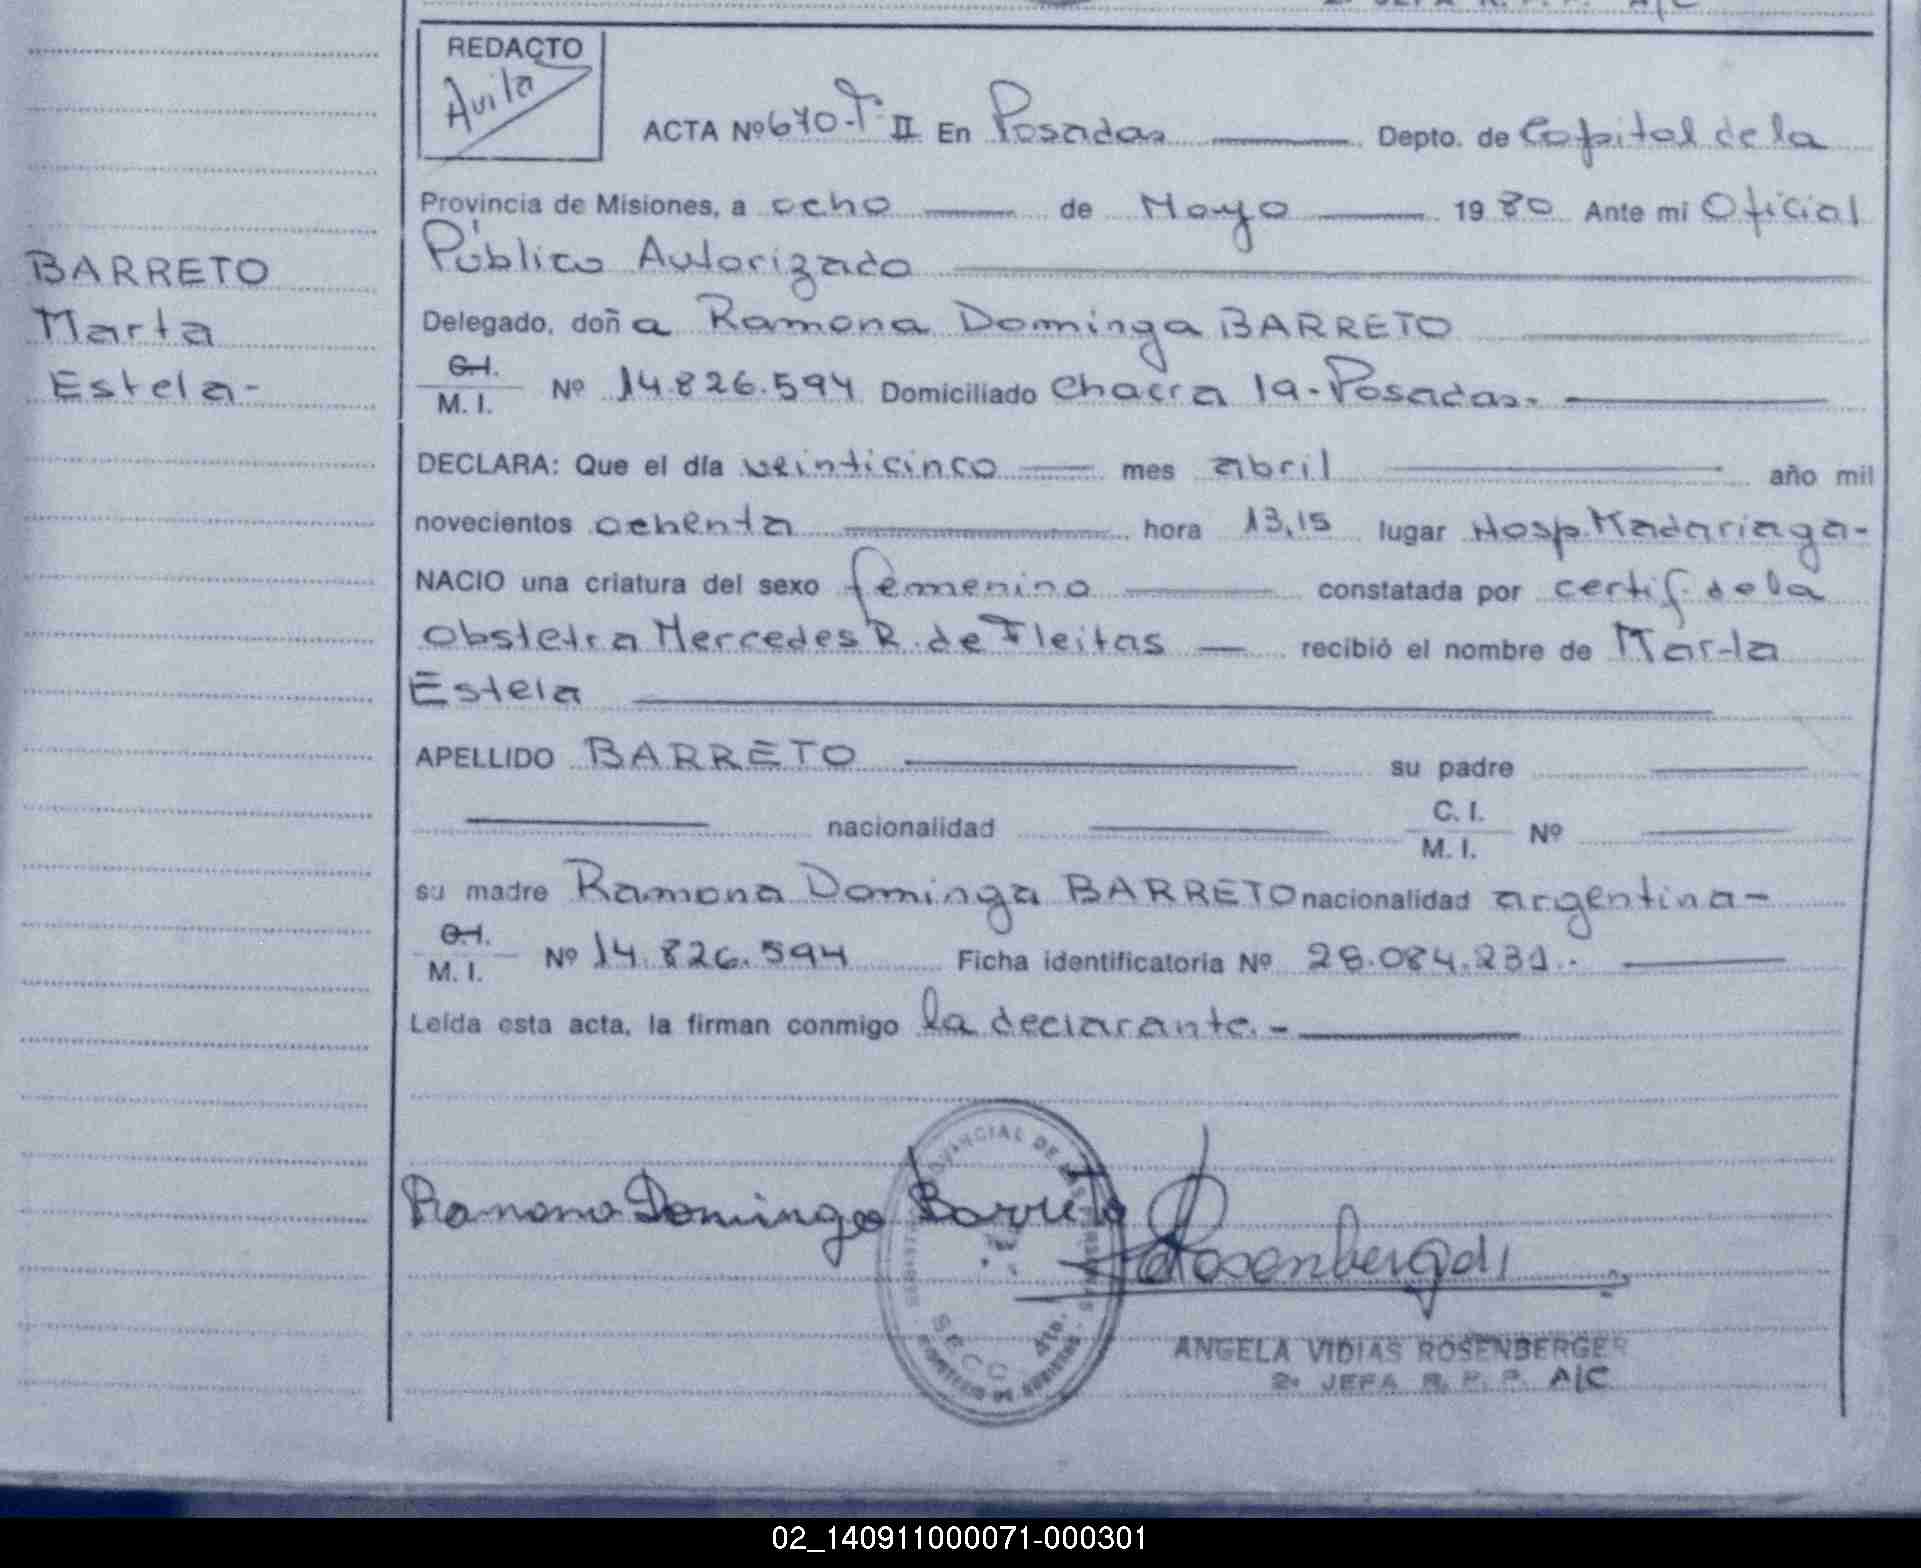 2º JEFA R. P. P. A/C
REDACTO
Avila
ACTA Nº 670-Tº II En Posadas Depto. de Capital de la
Provincia de Misiones, a ocho de Mayo 1980 Ante mi Oficial
Público Autorizado
BARRETO
Marta
Estela-
Delegado, doña Ramona Dominga BARRETO
C.I.
M. I. Nº 14.826.594 Domiciliado Chacra 19-Posadas.
DECLARA: Que el día veinticinco mes abril año mil
novecientos ochenta hora 13,15 lugar Hosp. Madariaga-
NACIO una criatura del sexo femenino constatada por certif. de la
Obstetra Mercedes R. de Fleitas recibió el nombre de Marta
Estela
APELLIDO BARRETO su padre
nacionalidad C. I.
M. I. Nº
su madre Ramona Dominga BARRETO nacionalidad argentina-
C.I.
M. I. Nº 14.826.594 Ficha identificatoria Nº 28.084.231.-
Leída esta acta, la firman conmigo la declarante.-
Ramona Dominga Barreto
ANGELA VIDIAS ROSENBERGER
2º JEFA R. P. P. A/C
02_140911000071-000301